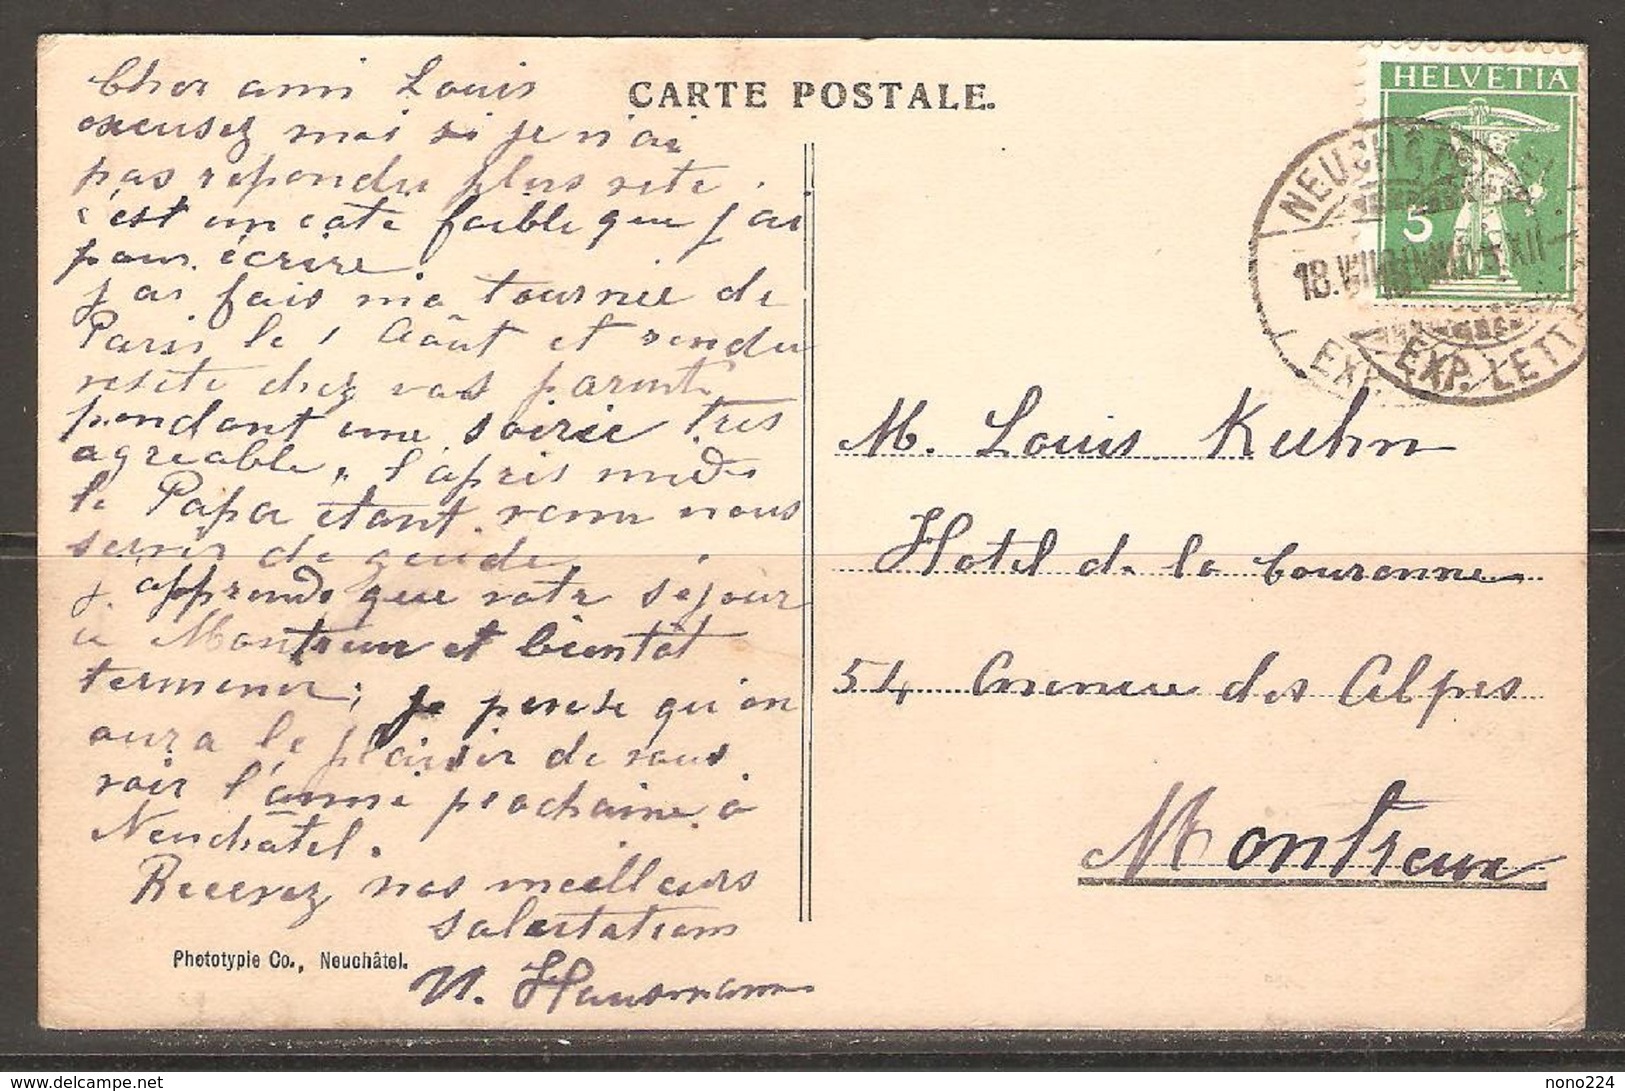 CARTE POSTALE.
Cher ami Louis
excusez moi si je n'ai
pas repondu plus vite.
c'est un cote faible que j'ai
pour écrire.
j'ai fais ma tournée de
Paris le 1 Août et rendu
visite chez vos parents
pendant une soirée tres
agreable, l'apris midi
le Papa etant venu nous
servir de guide.
j'apprends que votre séjour
a Montreux et bientôt
terminer; je pense qu'on
aura le plaisir de vous
voir l'année prochaine à
Neuchâtel.
Recevez nos meilleurs
salutations
Hausmann
Phototypie Co., Neuchâtel.
HELVETIA
5
NEUCHÂTEL
18.VIII
XII
EXP. LETT
M. Louis Kuhn
Hotel de la Couronne
54 Avenue des Alpes
Montreux
nono224
delcampe.net